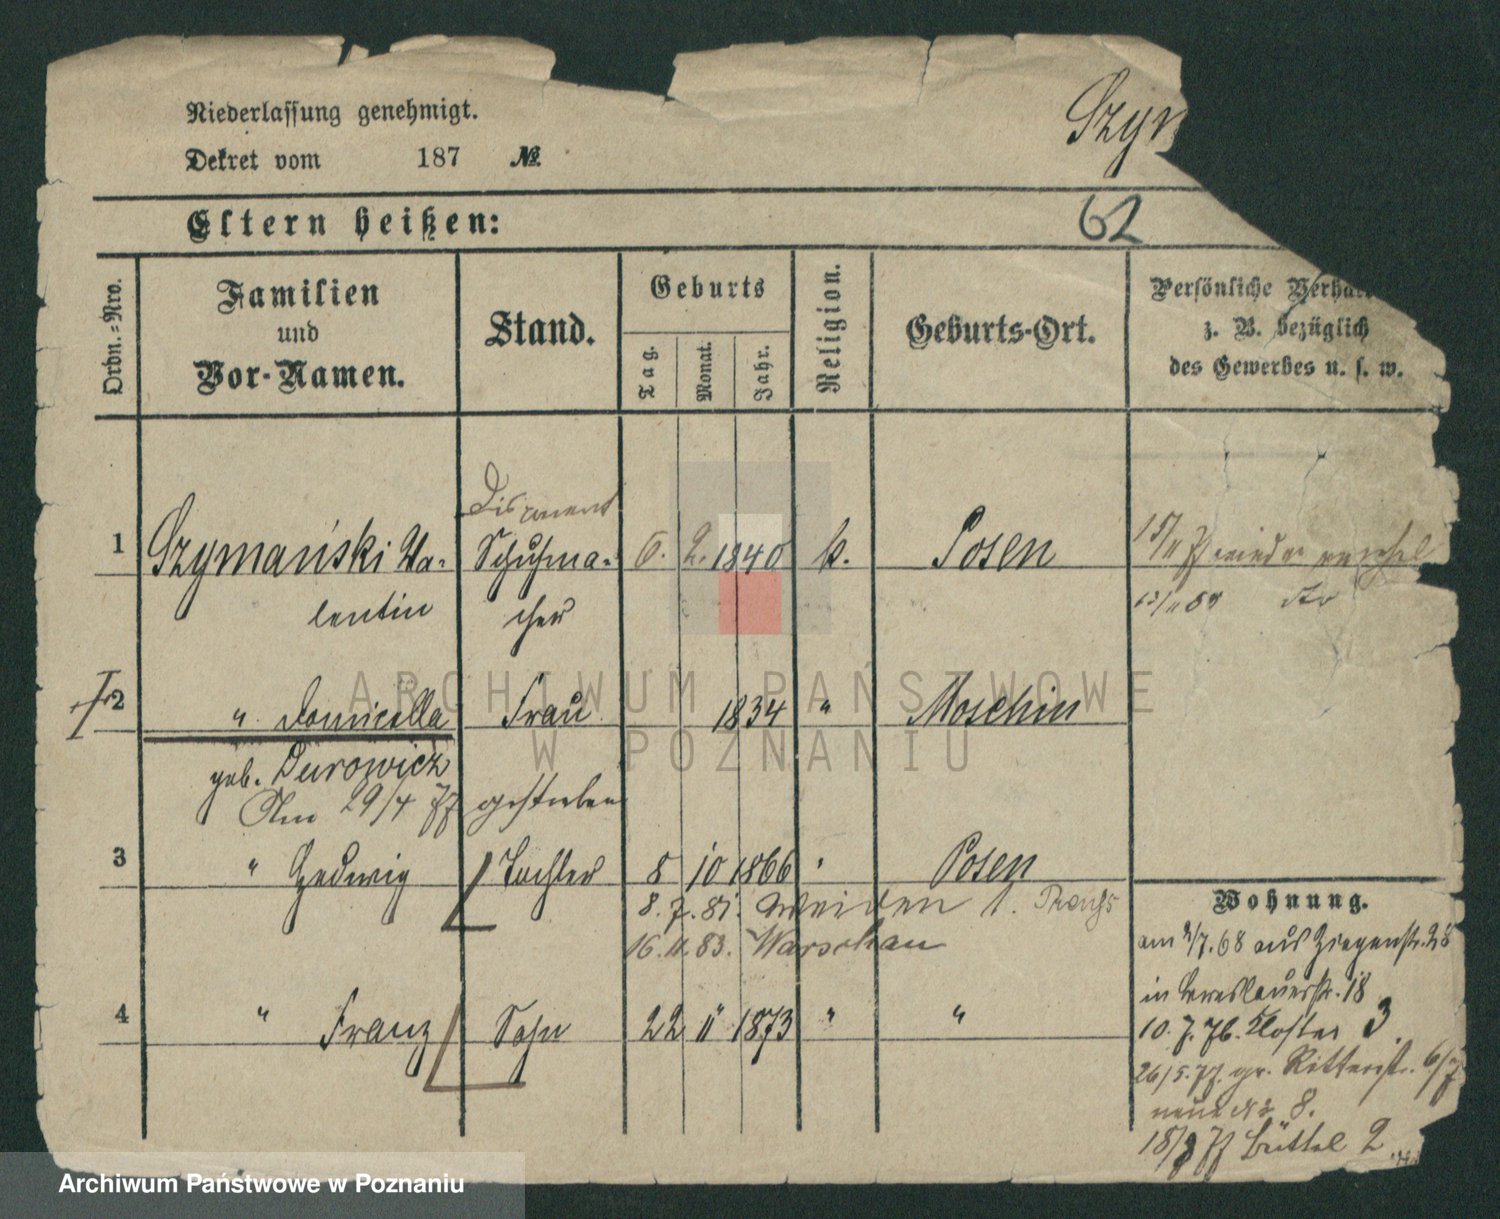 Niederlassung genehmigt.
Szym
Dekret vom 187 №
Eltern heißen:
62
Ordn.=Nro.
Familien
und
Vor-Namen.
Stand.
Geburts
Tag.
Monat.
Jahr.
Religion.
Geburts-Ort.
Persönliche
z. B. bezüglich
des Gewerbes u. s. w.
1 Szymański Va- Schuhma- 6. 2. 1840 k. Posen
lentin cher
13/11 84
2 " Domicella Frau 1834 " Moschin
geb. Durowicz
Am 29/4 77 gestorben
3 " Hedwig Tochter 8 10 1866 " Posen
8. 7. 81.
16. 11. 83. Warschau
4 " Franz Sohn 22 11 1873 " "
Wohnung.
am 2/7. 68 aus Ziegenstr. 28
in Breslauerstr. 18
10. 7. 76. Kloster 3
26/5. 77. gr. Ritterstr. 6/7
neue № 8.
Büttel 2
ARCHIWUM PAŃSTWOWE
W POZNANIU
Archiwum Państwowe w Poznaniu